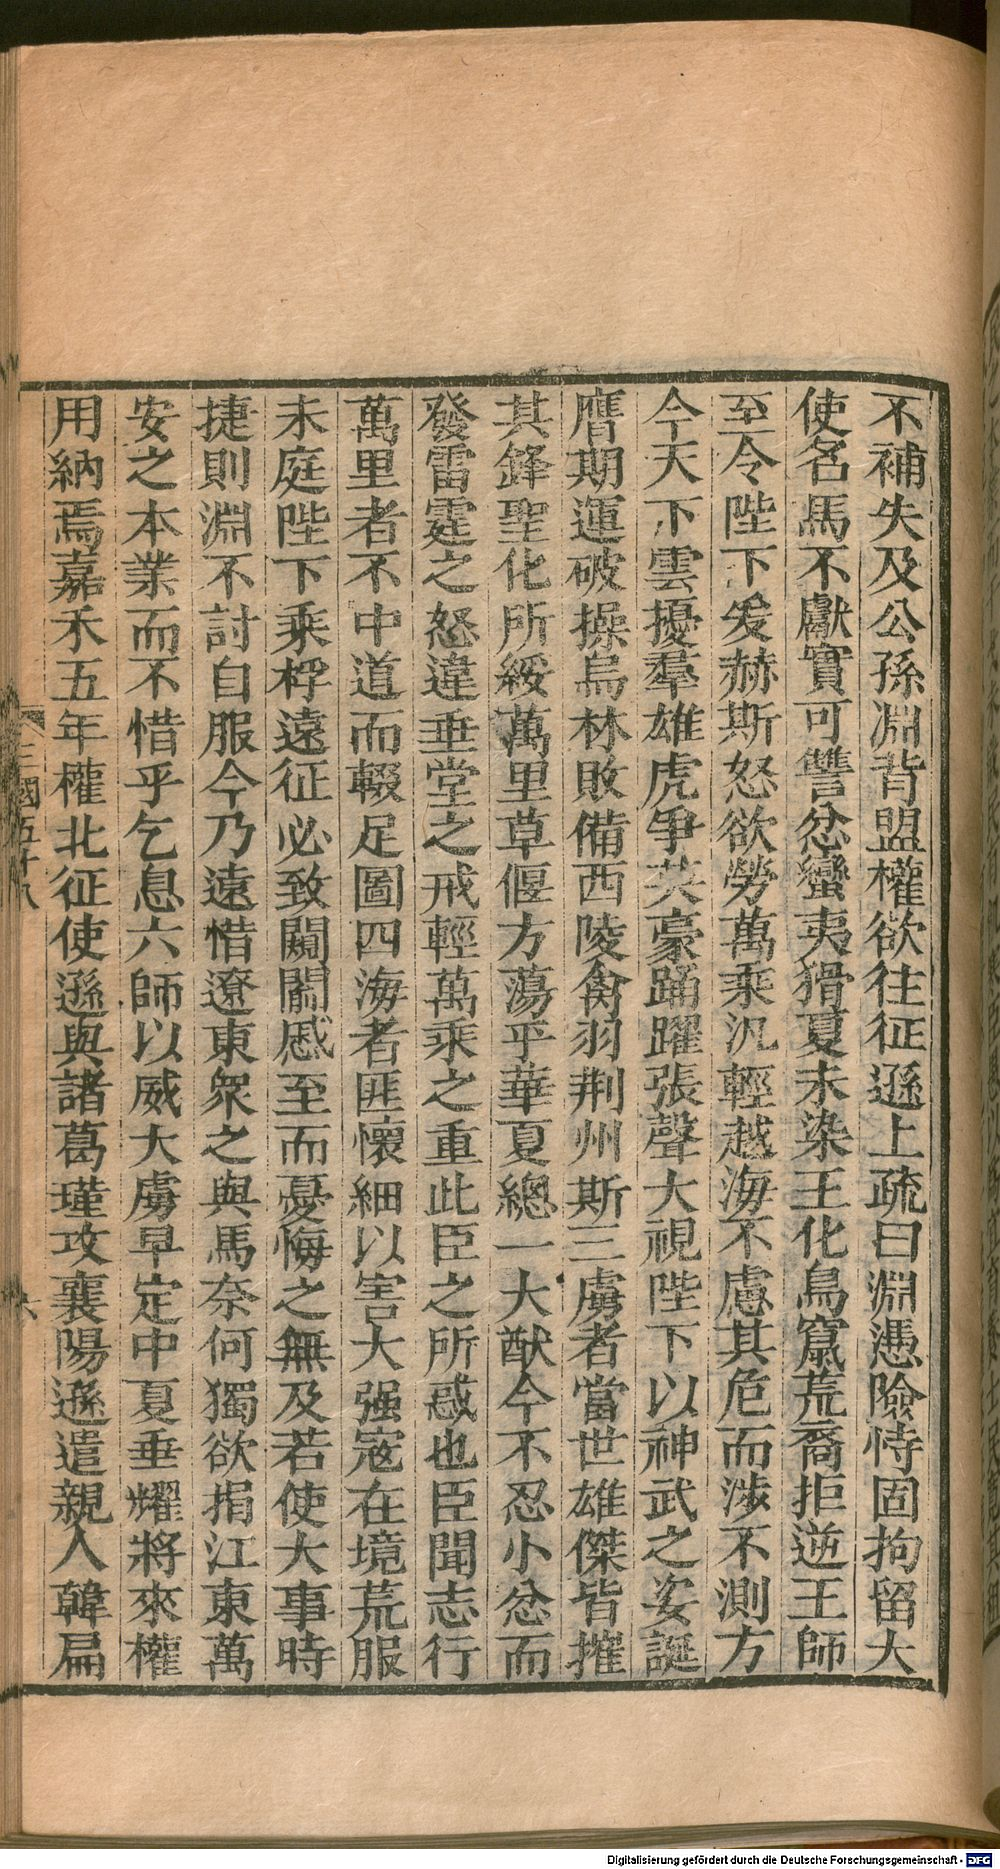 不補失及公孫淵背盟權欲往征遜上疏曰淵憑險恃固拘留大
使名馬不獻實可讐忿蠻夷猾夏未染王化鳥竄荒裔拒逆王師
至令陛下爰赫斯怒欲勞萬乘汎輕越海不慮其危而涉不測方
今天下雲擾羣雄虎爭英豪踊躍張聲大視陛下以神武之姿誕
膺期運破操烏林敗備西陵禽羽荆州斯三虜者當世雄傑皆摧
其鋒聖化所綏萬里草偃方蕩平華夏總一大猷今不忍小忿而
發雷霆之怒違垂堂之戒輕萬乘之重此臣之所惑也臣聞志行
萬里者不中道而輟足圖四海者匪懷細以害大强寇在境荒服
未庭陛下乘桴遠征必致闚䦱慼至而憂悔之無及若使大事時
捷則淵不討自服今乃遠惜遼東衆之與馬奈何獨欲捐江東萬
安之本業而不惜乎乞息六師以威大虜早定中夏垂耀將來權
用納焉嘉禾五年權北征使遜與諸葛瑾攻襄陽遜遣親人韓扁
三國五十八
六
Digitalisierung gefördert durch die Deutsche Forschungsgemeinschaft - DFG